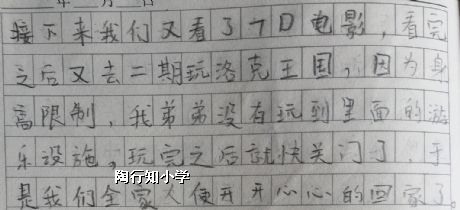 年 月 日
接下来我们又看了7D电影，看完
之后又去二期玩洛克王国，因为身
高限制，我弟弟没有玩到里面的游
乐设施。玩完之后就快关门了，于
是我们全家人便开开心心的回家了。
陶行知小学